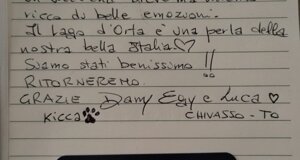 ricco di belle emozioni.
Il Lago d'Orta è una perla della
nostra bella Italia ♡
Siamo stati benissimo !!
RITORNEREMO.
GRAZIE Dany Egy e Luca ♡
Kicca 🐾 CHIVASSO - TO